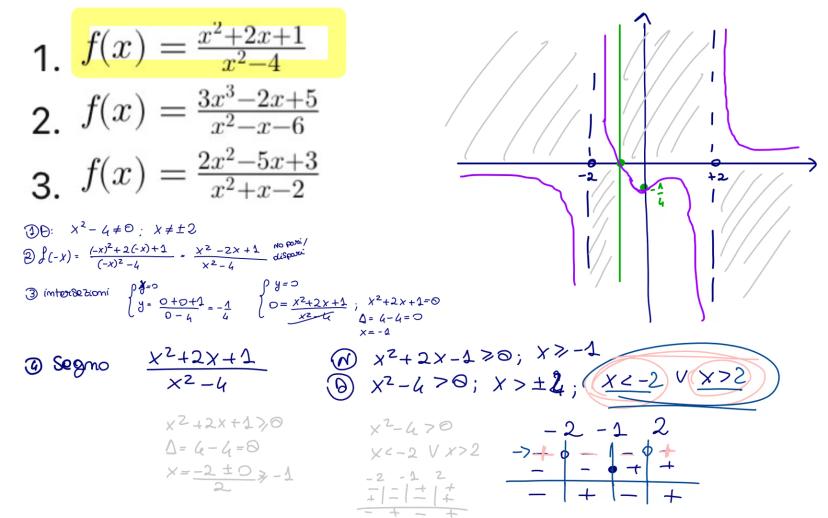 1. f(x) = x²+2x+1 / x²−4
2. f(x) = 3x³−2x+5 / x²−x−6
3. f(x) = 2x²−5x+3 / x²+x−2
① D: x²−4≠0; x≠±2
② f(-x) = (-x)²+2(-x)+1 / (-x)²-4 = x²−2x+1 / x²−4 no pari/dispari
③ intersezioni { x=0 y= 0+0+1 / 0−4 = −1/4 { y=0 0= x²+2x+1 / x²−4 ; x²+2x+1=0
Δ=4−4=0
x=−1
④ Segno x²+2x+1 / x²−4
Ⓝ x²+2x−1⩾0; x⩾−1
Ⓓ x²−4>0; x>±2; x<−2 ∨ x>2
x²+2x+1⩾0
Δ=4−4=0
x= −2±0 / 2 ⩾ −1
x²−4>0
x<−2 ∨ x>2
−2 −1 2
+ | − | − | +
− | − | + | +
− + − +
−2 −1 2
-> + − − +
− − + +
− + − +
−2 +2
−1/4